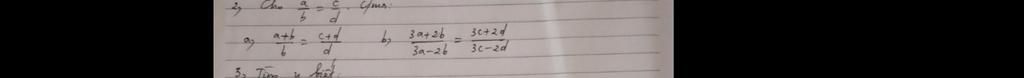 2, Cho a/b = c/d. Cmr:
a, (a+b)/b = (c+d)/d b, (3a+2b)/(3a-2b) = (3c+2d)/(3c-2d)
3, Tìm